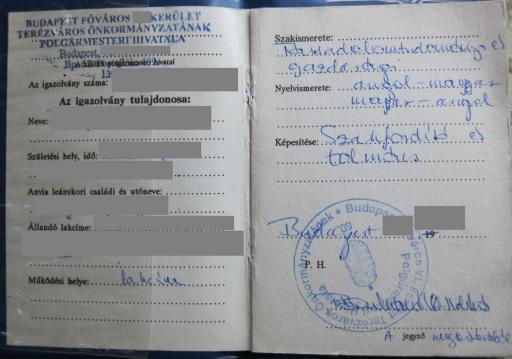 BUDAPEST FŐVÁROS KERÜLET
TERÉZVÁROS ÖNKORMÁNYZATÁNAK
POLGÁRMESTERI HIVATALA
Budapest,
hivatal
Az igazolvány száma:
Az igazolvány tulajdonosa:
Neve:
Születési hely, idő:
Anyja leánykori családi és utóneve:
Állandó lakcíme:
Működési helye: lakcíme
Szakismerete:
társadalomtudományi és
gazdasági
Nyelvismerete: angol-magyar
magyar-angol
Képesítése: Szakfordító és
tolmács
Budapest 19
P. H.
A jegyző